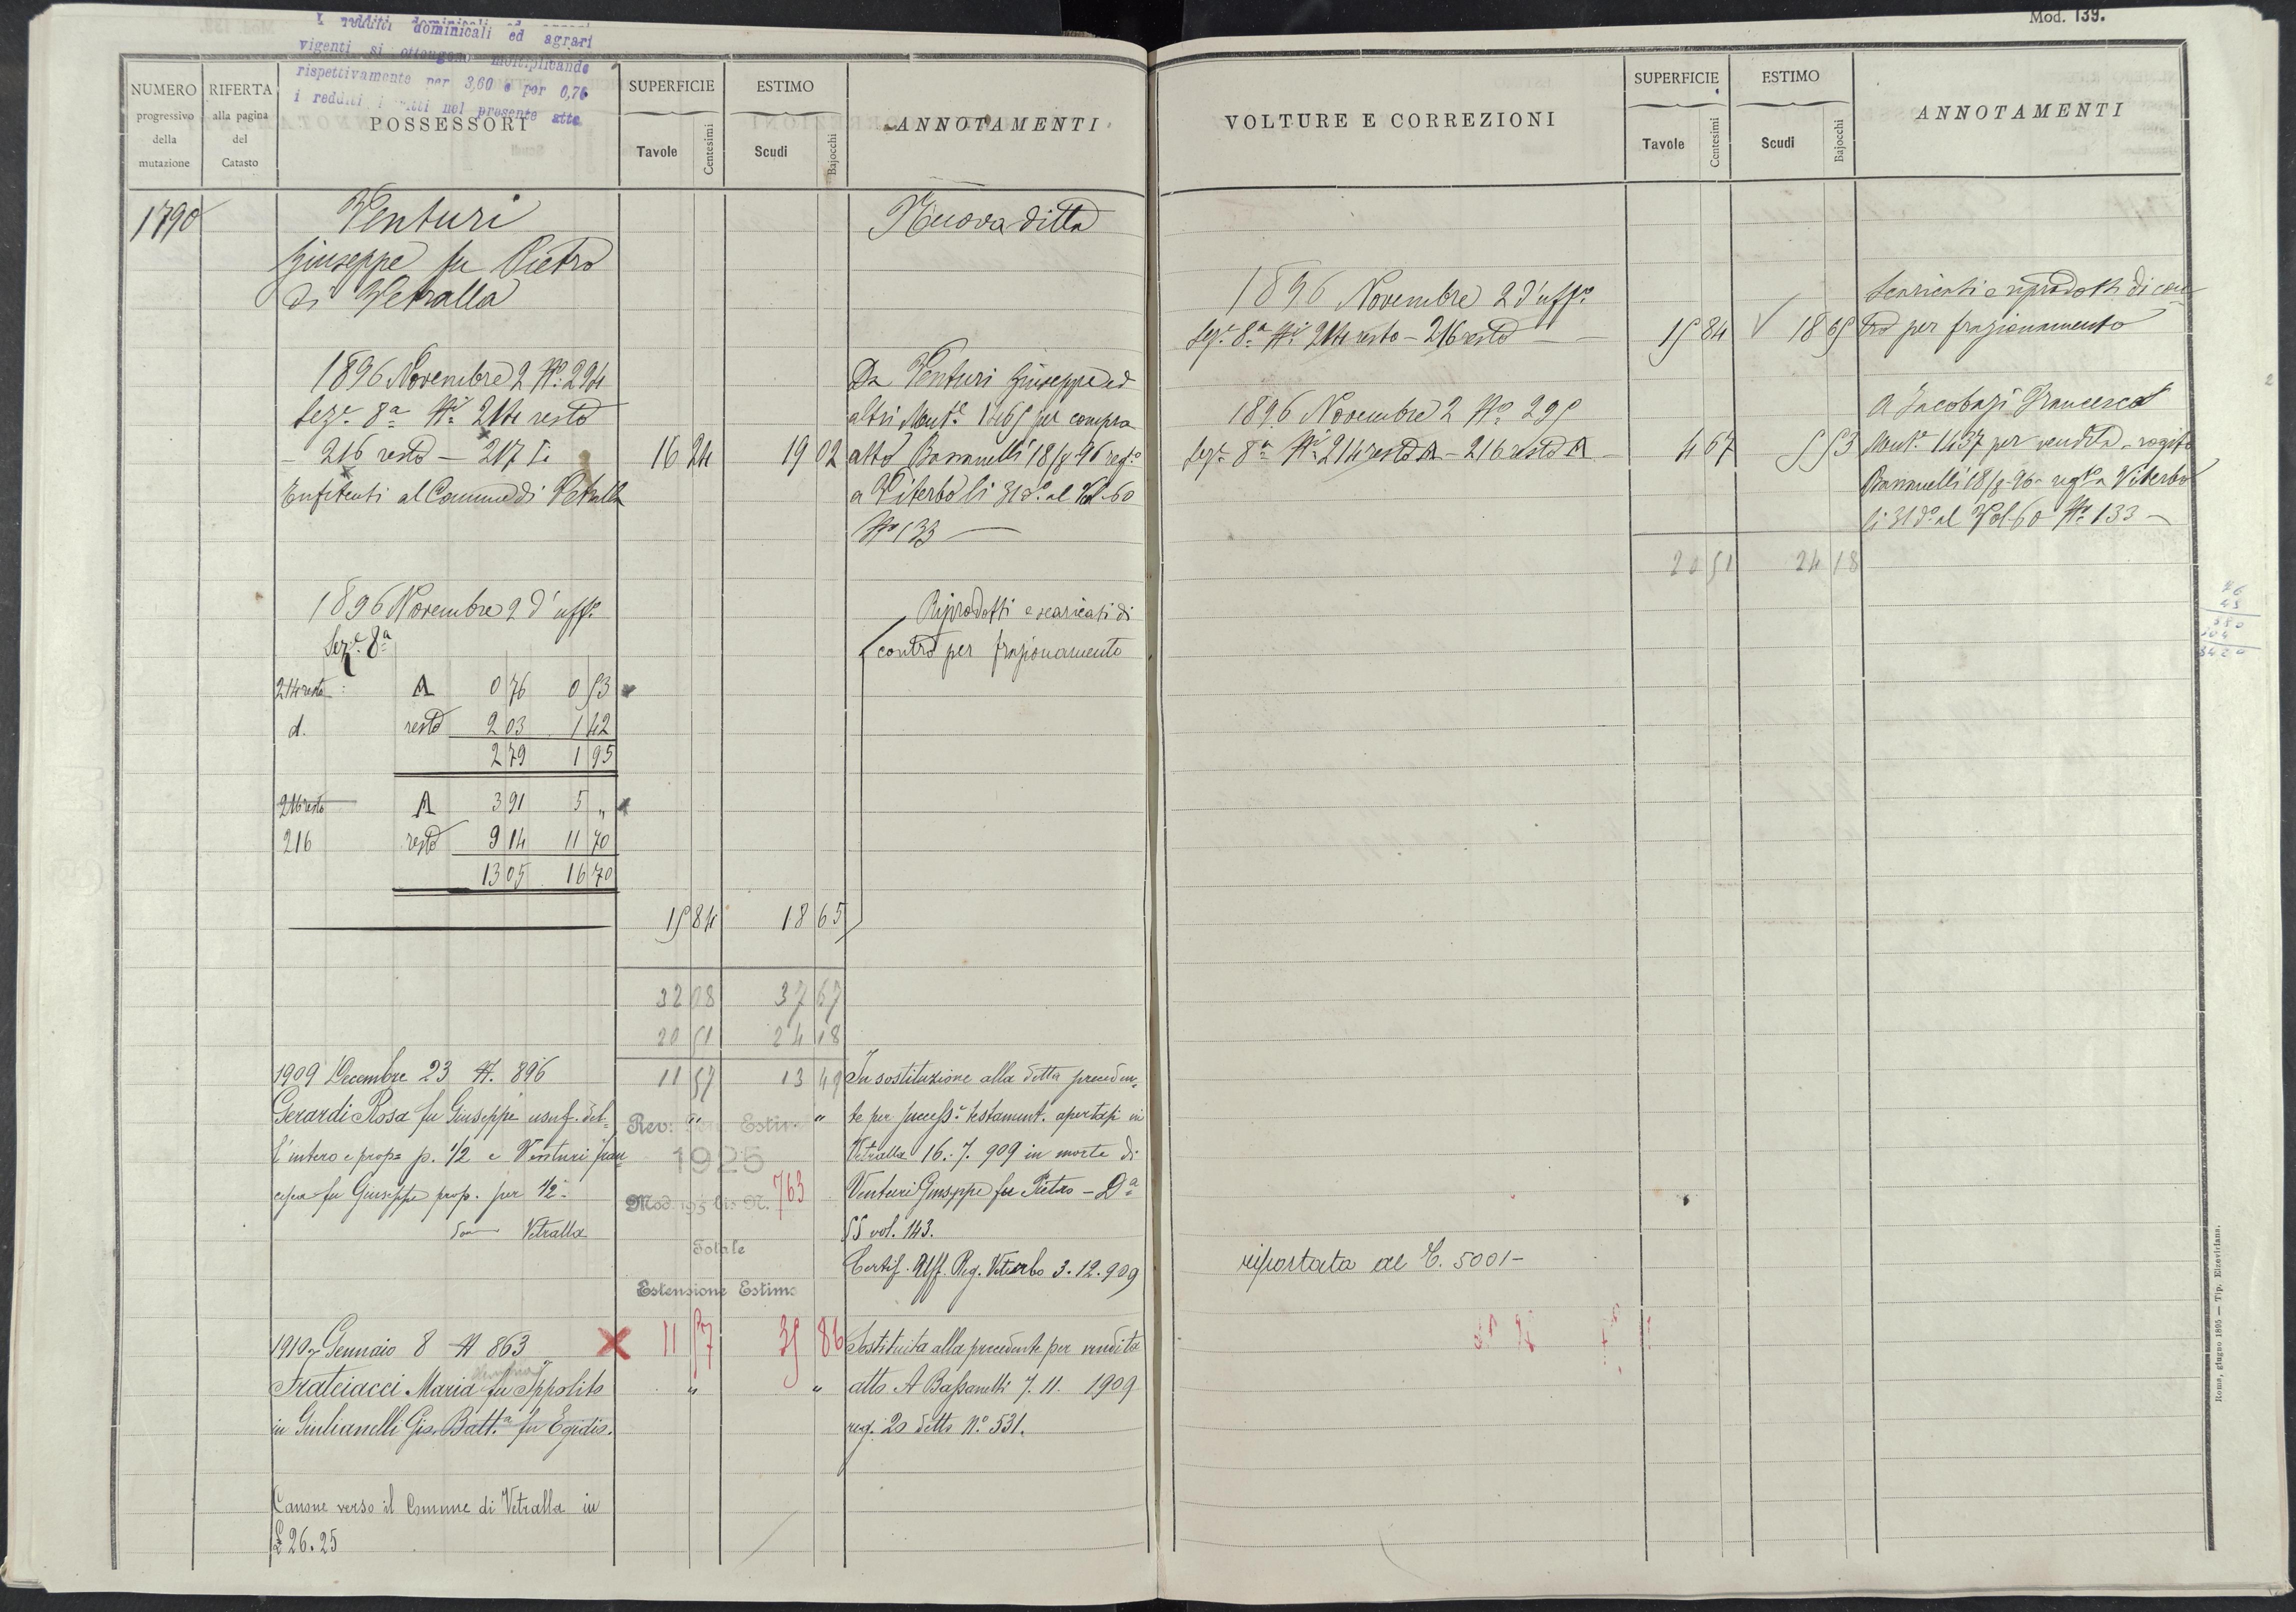 Mod. 139.
I redditi dominicali ed agrari
vigenti si ottengono moltiplicando
rispettivamente per 3,60 e per 0,76
i redditi nel presente atto
NUMERO
progressivo
della
mutazione
RIFERTA
alla pagina
del
Catasto
POSSESSORI
SUPERFICIE
Tavole
Centesimi
ESTIMO
Scudi
Bajocchi
ANNOTAMENTI
1790
Venturi
Giuseppe fu Pietro
di Vetralla
Nuova ditta
1896 Novembre 2 N° 294
Sez.e 8a Ni 214 resto
– 216 resto – 217
16 24
19 02
Enfiteuti al Comune di Vetralla
Da Venturi Giuseppe ed
altri Mut.e 1465 per compra
atto Bassanelli 18/8 96 reg.o
a Viterbo li 31 d.o al Vol. 60
N° 133
1896 Novembre 2 d'uff.o
Sez.e 8a
214 resto A 0 76 0 53
d. resto 2 03 1 42
2 79 1 95
216 resto A 3 91 5 "
216 resto 9 14 11 70
13 05 16 70
15 84
18 65
Riprodotti e scaricati di
contro per frazionamento
32 08 37 67
20 51 24 18
11 57 13 49
1909 Decembre 23 N. 896
Gerardi Rosa fu Giuseppe usuf. del-
l'intero e prop.a p. 1/2 e Venturi Fran
cesca fu Giuseppe prop. per 1/2
Vetralla
" "
In sostituzione alla ditta preceden-
te per success.e testament. apertasi in
Vetralla 16. 7. 909 in morte di
Venturi Giuseppe fu Pietro – Da
55 vol. 143.
Certif. Uff. Reg. Viterbo 3.12.909
Rev: Gen. Estimi
1925
Mod. N. 763
Totale
Estensione Estimo
11 57 35 86
1910 Gennaio 8 N 863
Frateiacci Maria fu Ippolito
in Giulianelli Gio. Batt.a fu Egidio.
" "
Sostituita alla precedente per vendita
atto A Bassanelli 7. 11. 1909
reg. 20 detto N.° 531.
Canone verso il Comune di Vetralla in
£ 26.25
VOLTURE E CORREZIONI
SUPERFICIE
Tavole
Centesimi
ESTIMO
Scudi
Bajocchi
ANNOTAMENTI
1896 Novembre 2 d'uff.o
Sez.e 8a Ni 214 resto – 216 resto
15 84
18 65
Scaricati e riprodotti di con
tro per frazionamento
1896 Novembre 2 N° 295
Sez.e 8a Ni 214 resto A – 216 resto A
4 67
5 53
A Jacobazi Francesco
Mut.e 1437 per vendita – rogito
Bassanelli 18/8 96 reg.to a Viterbo
li 31 d.o al Vol 60 N° 133
20 51
24 18
riportata al C. 5001 –
Roma, giugno 1895 — Tip. Elzeviriana.